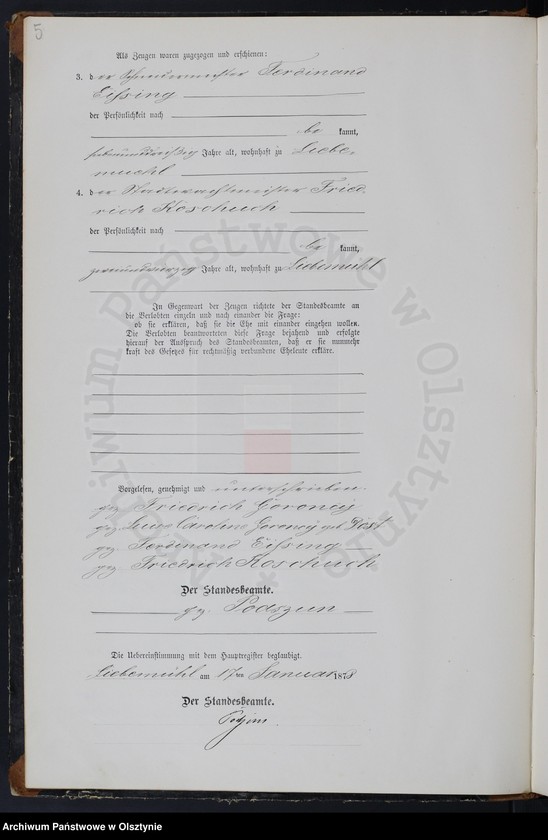 5
Als Zeugen waren zugezogen und erschienen:
3. der Ferdinand
Eißing
der Persönlichkeit nach
be kannt,
Jahre alt, wohnhaft zu Liebe-
muehl
4. der Stadtwachtmeister Fried-
rich Koschuch
der Persönlichkeit nach
be kannt,
zweiundvierzig Jahre alt, wohnhaft zu Liebemühl
In Gegenwart der Zeugen richtete der Standesbeamte an
die Verlobten einzeln und nach einander die Frage:
ob sie erklären, daß sie die Ehe mit einander eingehen wollen.
Die Verlobten beantworteten diese Frage bejahend und erfolgte
hierauf der Ausspruch des Standesbeamten, daß er sie nunmehr
kraft des Gesetzes für rechtmäßig verbundene Eheleute erkläre.
Vorgelesen, genehmigt und unterschrieben.
gez. Friedrich
gez. Caroline geb.
gez. Ferdinand Eißing
gez. Friedrich Koschuch
Der Standesbeamte.
gez. Podszun
Die Uebereinstimmung mit dem Hauptregister beglaubigt.
Liebemühl am 17ten Januar 1878
Der Standesbeamte.
Archiwum Państwowe w Olsztynie
Archiwum Państwowe w Olsztynie